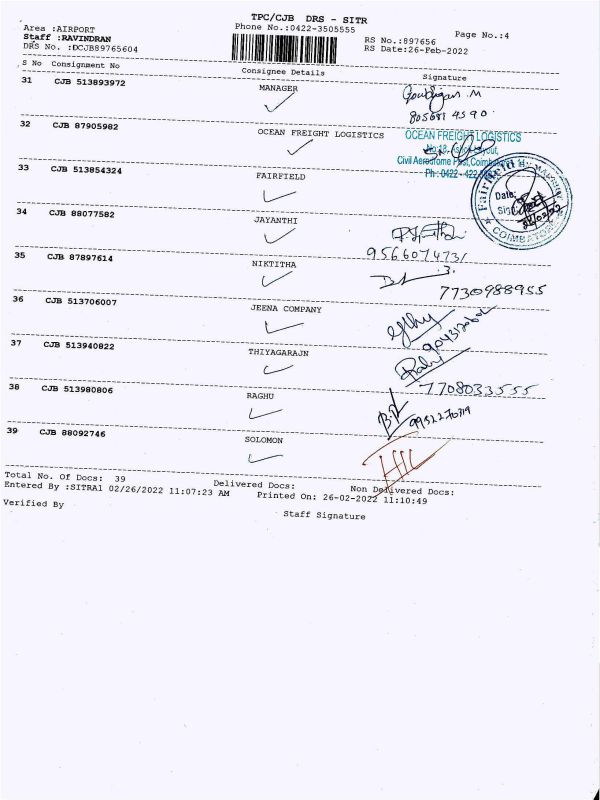 TPC/CJB DRS - SITR
Area :AIRPORT
Phone No.:0422-3505555
Page No.:4
Staff :RAVINDRAN
RS No.:897656
DRS No. :DCJB89765604
RS Date:26-Feb-2022
S No Consignment No Consignee Details Signature
31 CJB 513893972 MANAGER
32 CJB 87905982 OCEAN FREIGHT LOGISTICS
OCEAN FREIGHT LOGISTICS
Civil Aerodrome Post, Coimbatore
33 CJB 513854324 FAIRFIELD
Fairfield
Date:
COIMBATORE
34 CJB 88077582 JAYANTHI
9566074731
35 CJB 87897614 NIKTITHA
7730988955
36 CJB 513706007 JEENA COMPANY
37 CJB 513940822 THIYAGARAJN
7708033555
38 CJB 513980806 RAGHU
39 CJB 88092746 SOLOMON
Total No. Of Docs: 39 Delivered Docs: Non Delivered Docs:
Entered By :SITRA1 02/26/2022 11:07:23 AM Printed On: 26-02-2022 11:10:49
Verified By Staff Signature